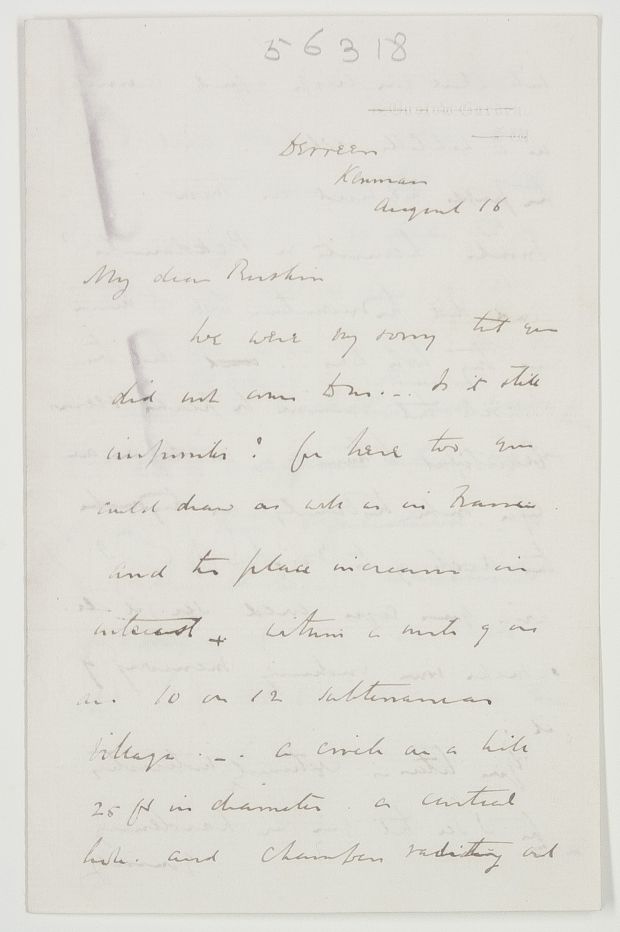 56318
Derreen
Kenmare
August 16
My dear Ruskin
We were very sorry that you
did not come to us. – Is it still
impossible? for here too you
could draw as well as in France
and the place increases in
interest + within a mile of us
are 10 or 12 subterranean
villages. – a circle on a hill
25 ft in diameter. a central
hole. and chambers radiating out